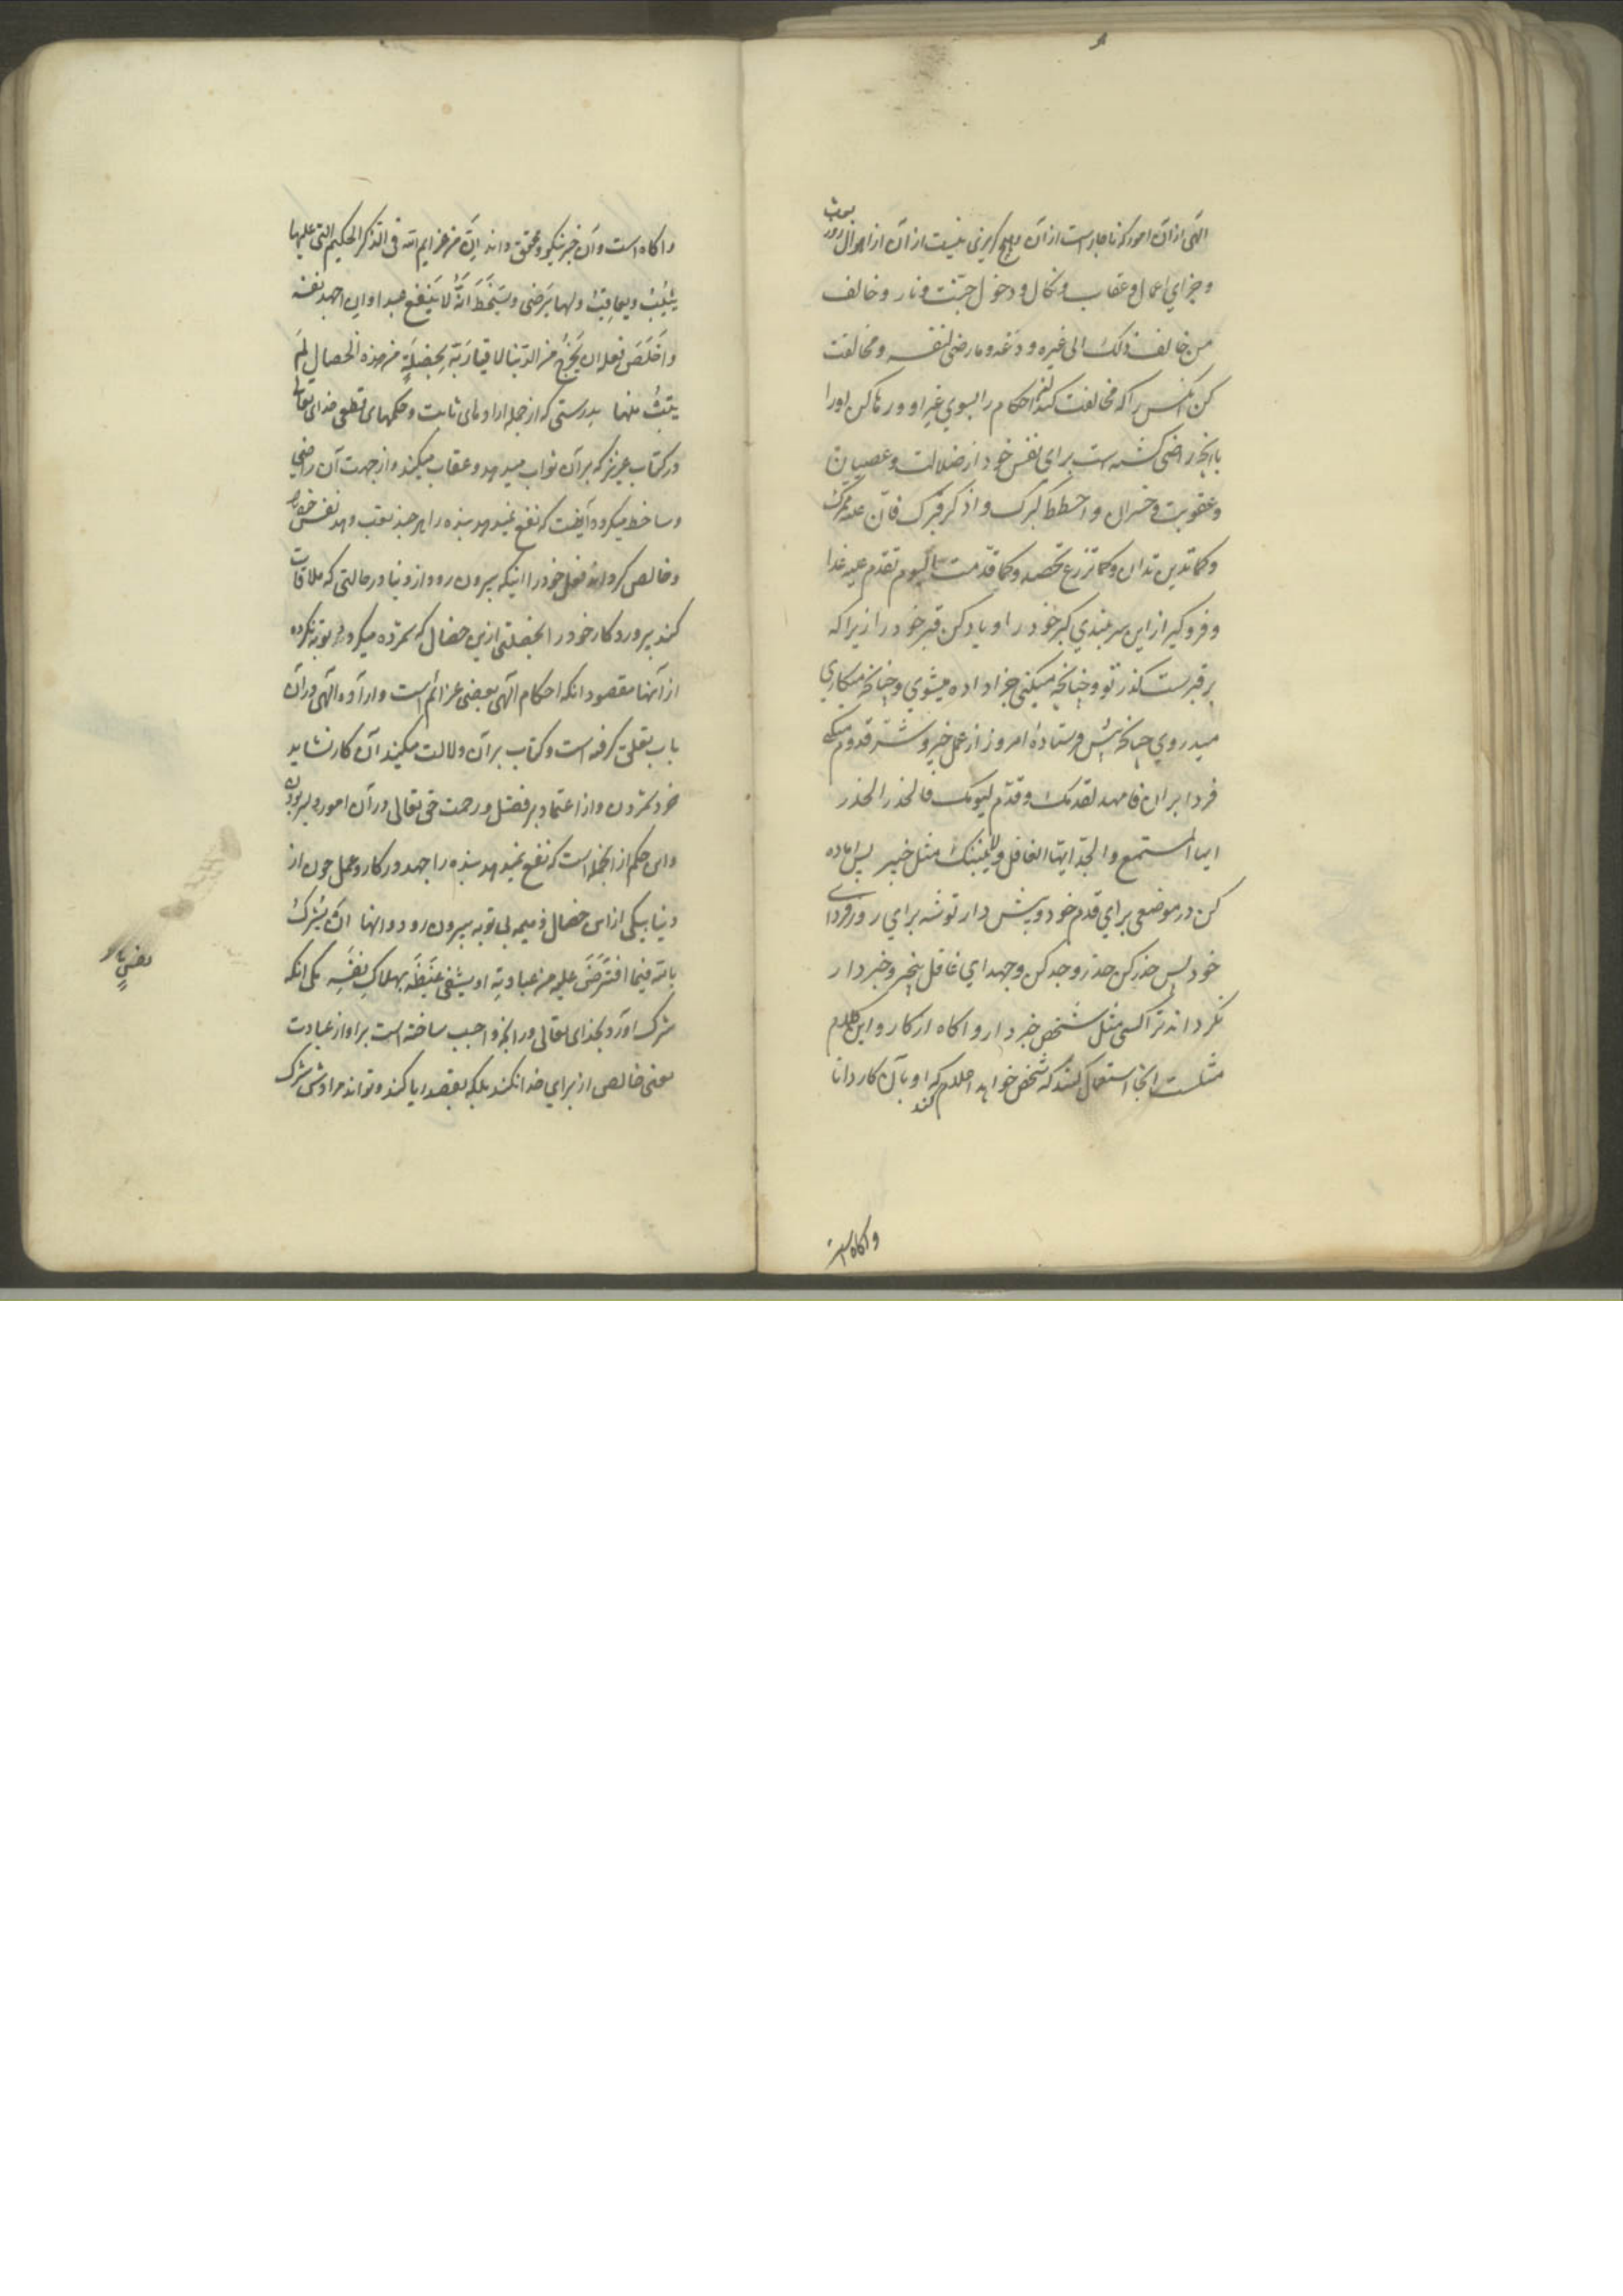 الهی از آن امور که ناچار است از آن و هیچ گریزی نیست از آن از اهوال روز بعث
و جزای اعمال و عقاب و نکال و دخول جنت و نار و خالف
من خالف ذلک الی غیره و دعه و ما رضی لنفسه و مخالفت
کن آنکس را که مخالفت کند این احکام را بسوی غیر او و رها کن اورا
با آنچه راضی گشته است برای نفس خود از ضلالت و عصیان
و عقوبت و خسران و احطط کبرک و اذکر قبرک فان علیه ممرک
و کما تدین تدان و کما تزرع تحصد و کما قدمت الیوم تقدم علیه غدا
و فروگیر از این سربلندی کبر خود را و یاد کن قبر خود را زیرا که
بر قبرست گذر تو و چنانچه میکنی جزا داده میشوی و چنانچه میکاری
میدروی چنانچه پیش فرستادهٔ امروز از عمل خیر و شر قدوم میکنی
فردا بر آن فامهد لقدمک و قدم لیومک فالحذر الحذر
ایها المستمع والجد ایها الغافل ولا ینبئک مثل خبیر پس آماده
کن در موضعی برای قدم خود و پیش دار توشه برای روز فردای
خود پس حذر کن حذر و جد کن و جهد ای غافل بیخبر و خبردار
نگرداند ترا کسی مثل شخص خبردار و آگاه از کار و این کلام
مثلست آنجا استعمال کنند که شخص خواهد اعلام کند که او بآن کار دانا
و آگاه است
و آگاه است و آن خبر نیکو و محقق داند ان من عزایم الله فی الذکر الحکیم التی علیها
یثیب و یعاقب و لها یرضی و یسخط انه لا ینفع عبدا و ان اجهد نفسه
و اخلص فعله ان یخرج من الدنیا لاقیا ربه بخصلة من هذه الخصال لم
یتب منها بدرستی که از جمله ارادهای ثابت و حکمهای قطعی خدای تعالی
در کتاب عزیز که بر آن ثواب میدهد و عقاب میکند و از جهت آن راضی
و ساخط میگردد آنست که نفع نمیدهد بنده را هر چند تعب دهد نفس خود را
و خالص گرداند فعل خود را اینکه بیرون رود از دنیا در حالتی که ملاقات
کند پروردگار خود را بخصلتی ازین خصال که شمرده میگردد توبه نکرده
از آنها مقصود آنکه احکام الهی بعضی عزائم است و ارادهٔ الهی در آن
باب تعلق گرفته است و کتاب بر آن دلالت میکند آن کار نشاید
خرد شمردن و از اعتماد بر فضل و رحمت حق تعالی در آن امور دلیر بودن
و این حکم از آنجمله است که نفع نمیدهد بنده را جهد در کار و عمل چون از
دنیا بیکی از این خصال ذمیمه بی توبه بیرون رود و انها ان یشرک
بالله فیما افترض علیه من عبادته او یشفی غیظه بهلاک نفسه یکی آنکه
شرک آورد بخدای تعالی در آنچه واجب ساخته است بر او از عبادت
یعنی خالص از برای خدا نکند بلکه بقصد ریا کند و تواند مرادش شرک